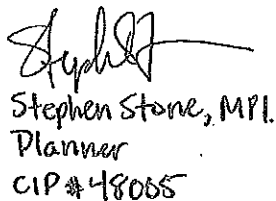 Stephen Stone, MPl.
Planner
CIP #48005